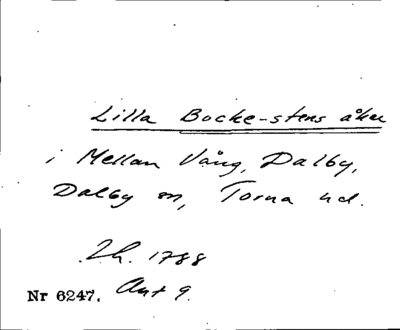 Lilla Bocke-stens åker
i Mellan Vång, Dalby,
Dalby sn, Torna hd.
Lh. 1788
Nr 6247. Akt 9.